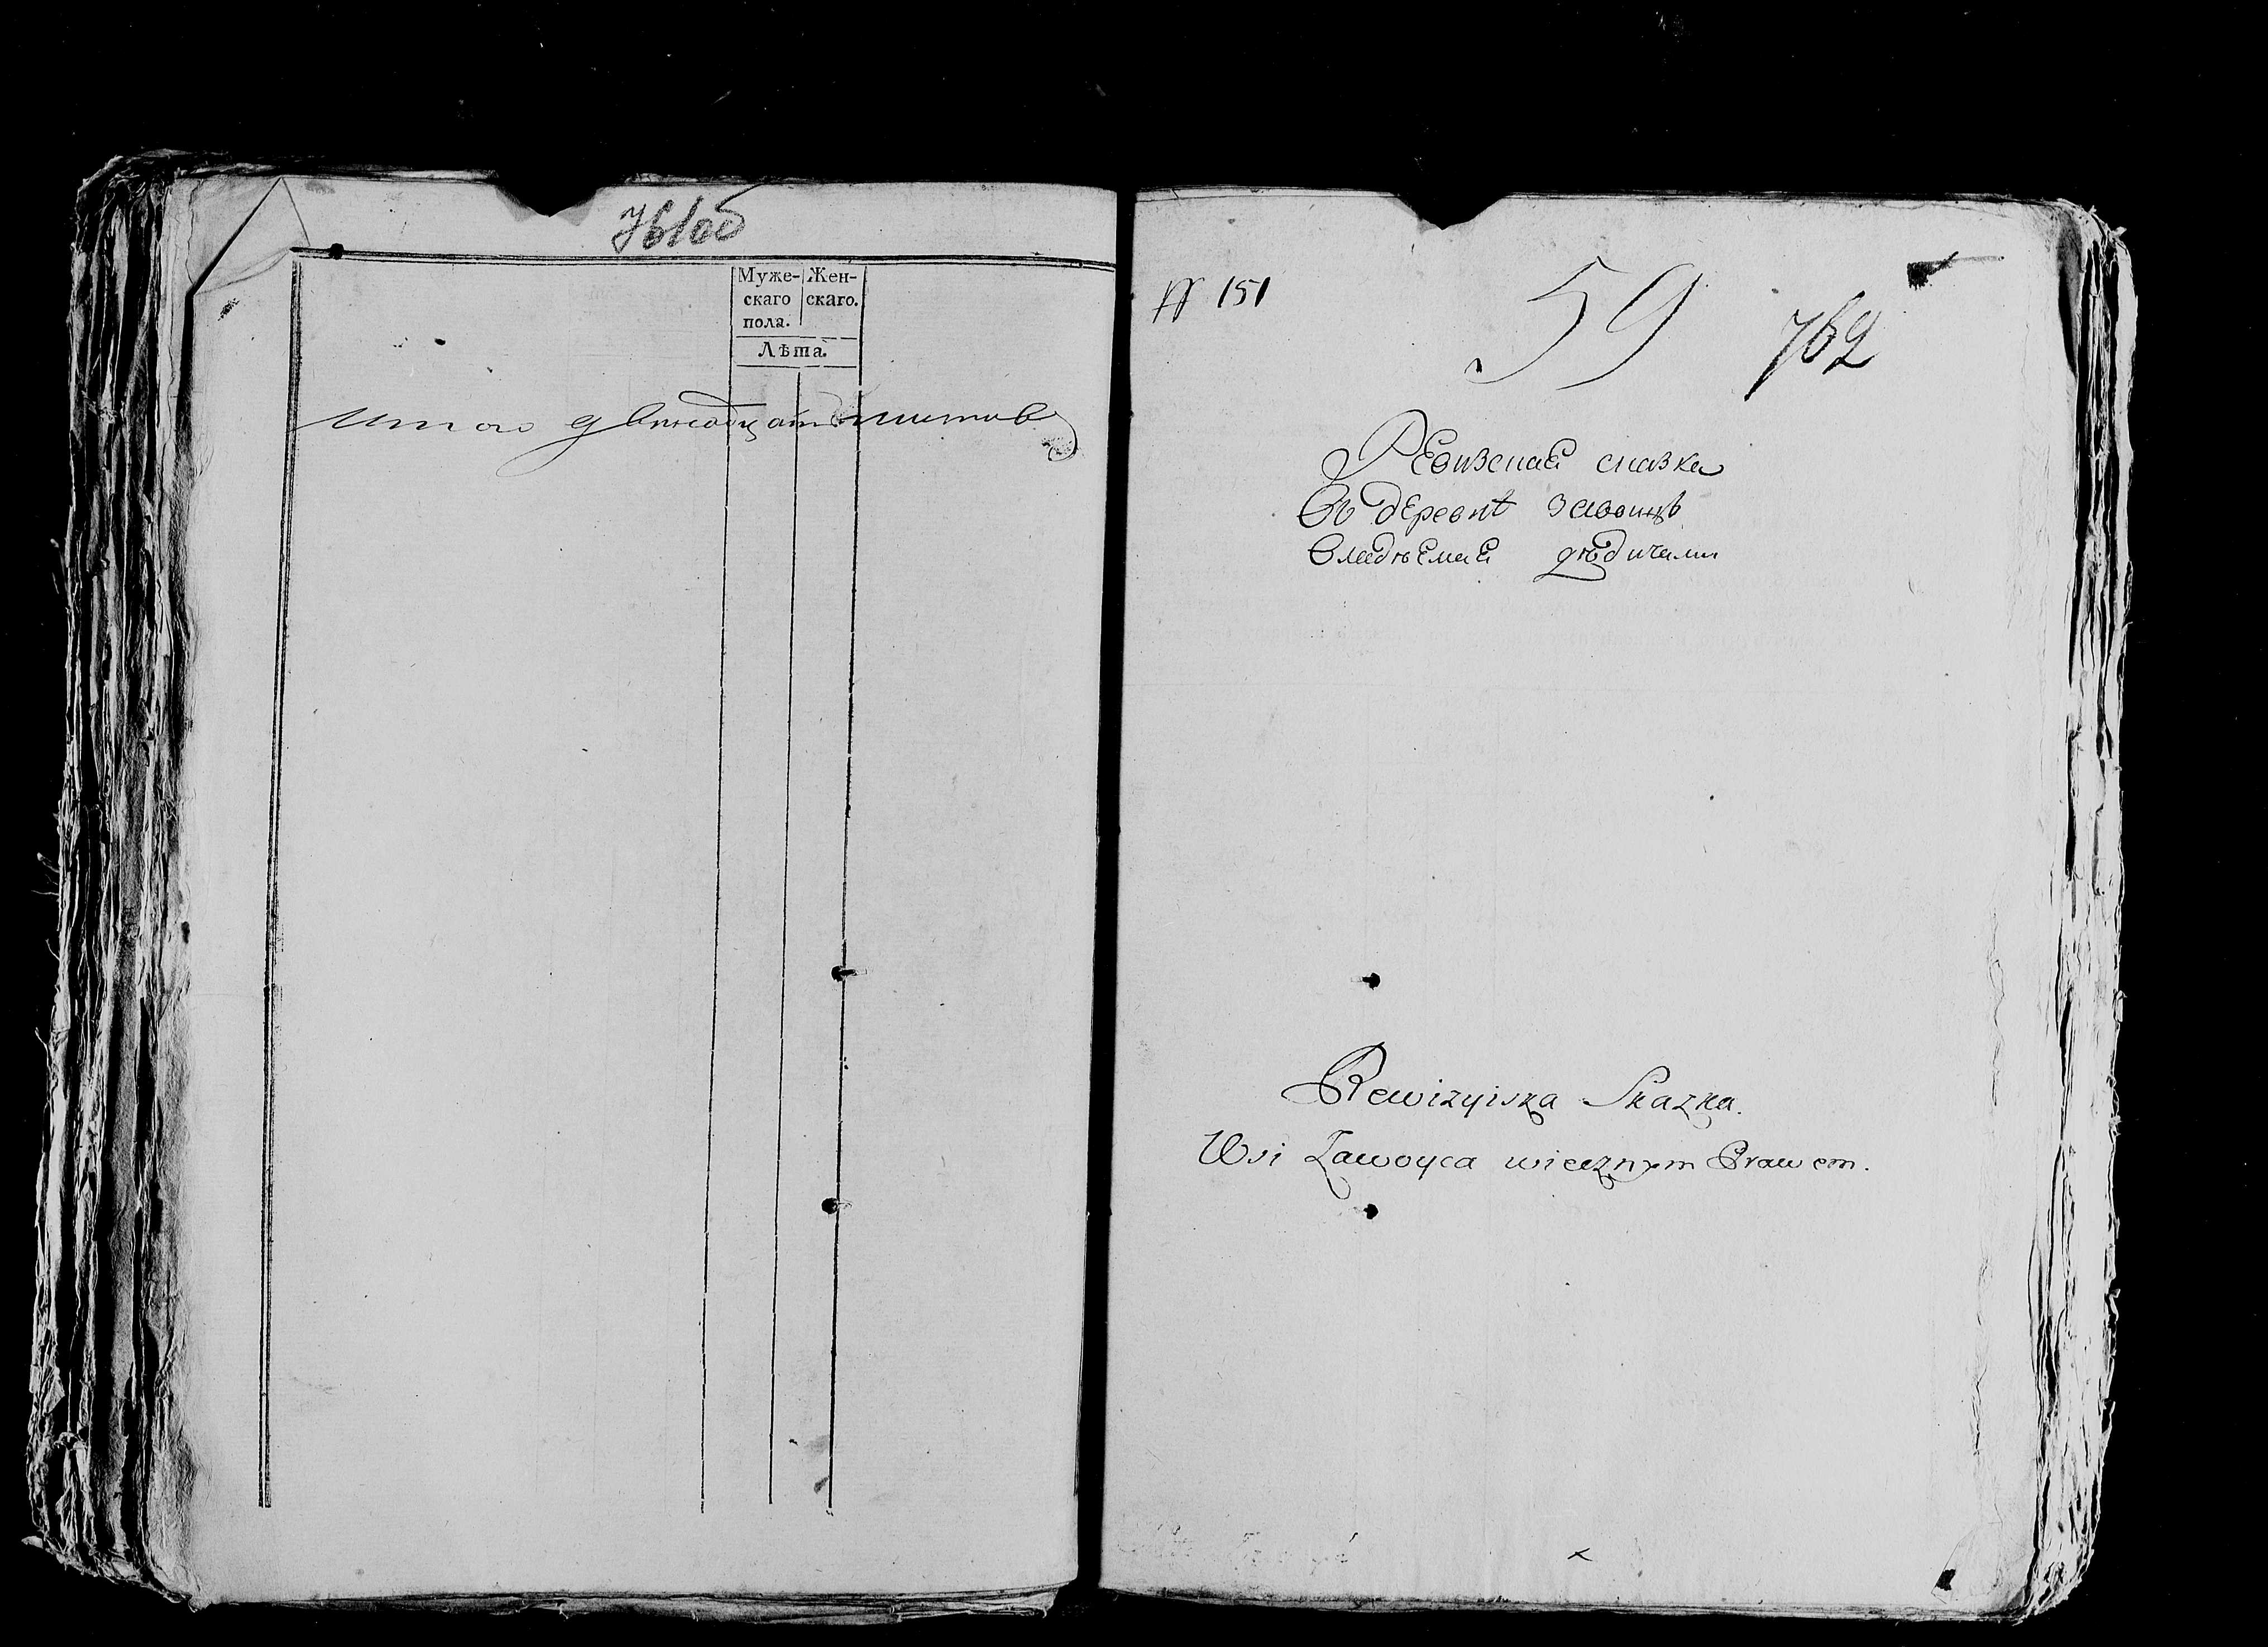 761об
Муже- Жен-
скаго скаго.
пола.
Лѣта.
Итого двенадцать листов
№ 151
59
762
Ревизская сказка
Въ деревнѣ Завоицѣ
владѣемая дѣдичами
Rewizyiska Skazka.
Wsi Zawoyca wiecznym Prawem.